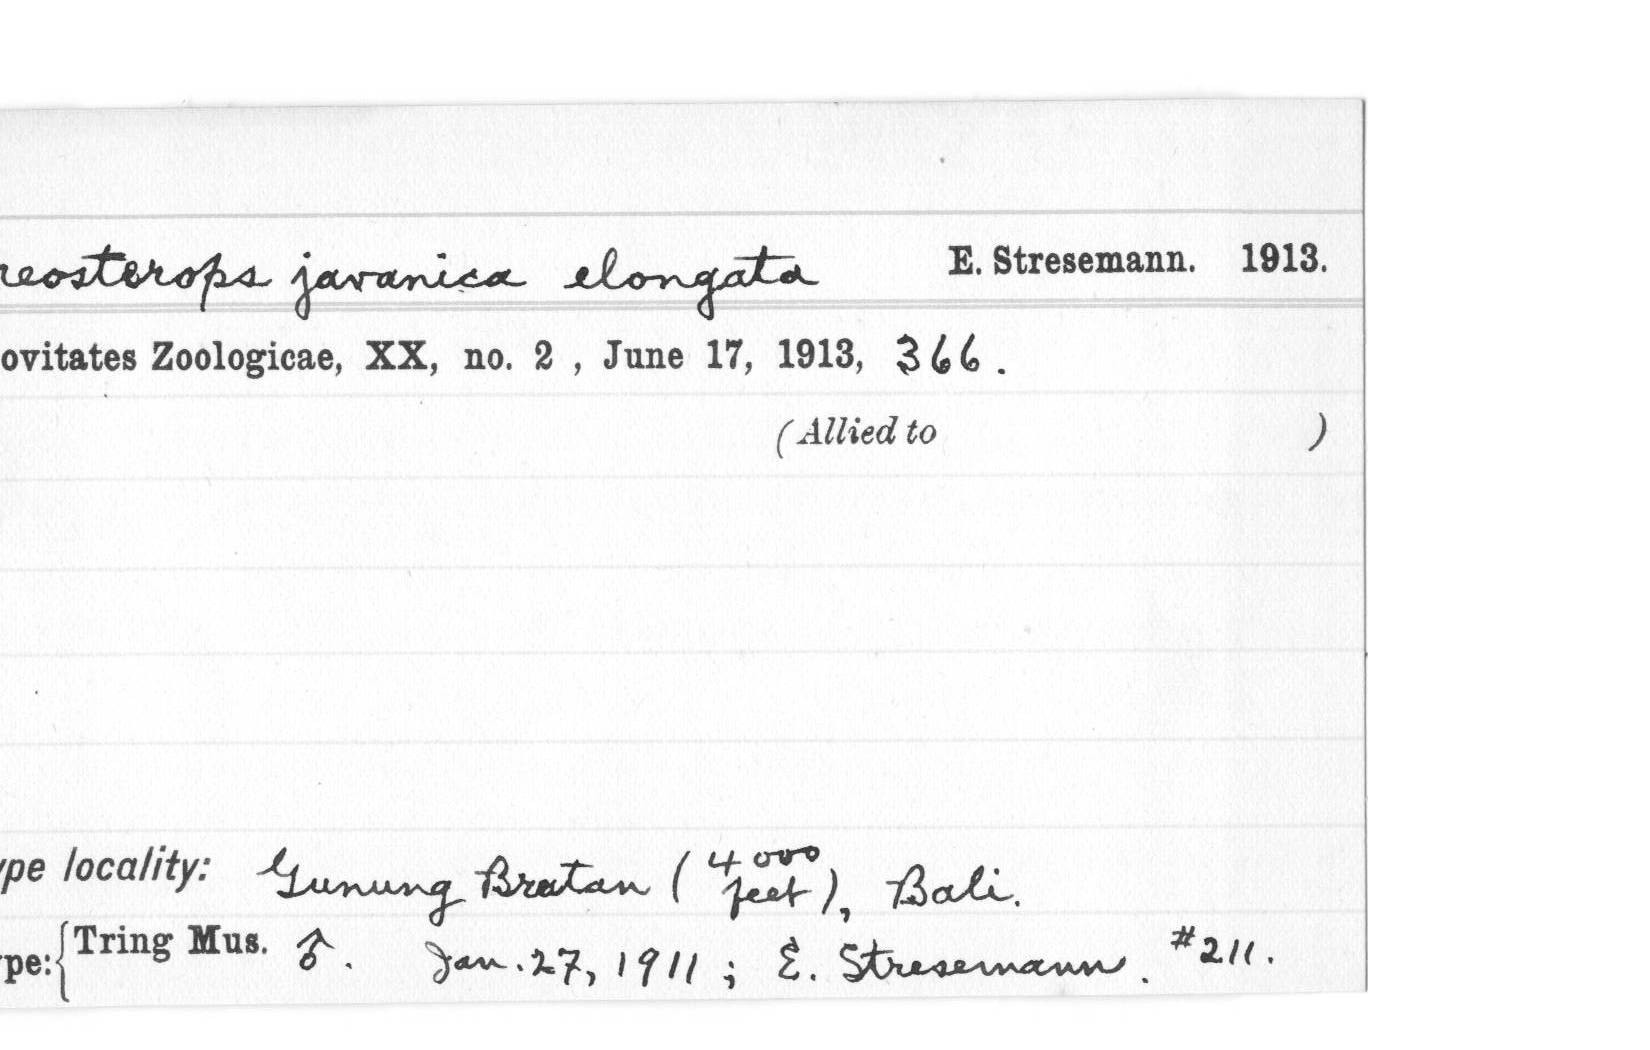 reosterops javanica elongata E. Stresemann. 1913.
ovitates Zoologicae, XX, no. 2 , June 17, 1913, 366.
(Allied to )
ype locality: Gunung Bratan (4000 feet), Bali.
ype: { Tring Mus. ♂. Jan. 27, 1911; E. Stresemann. #211.